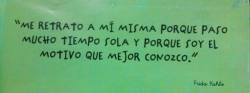 "ME RETRATO A MÍ MISMA PORQUE PASO
MUCHO TIEMPO SOLA Y PORQUE SOY EL
MOTIVO QUE MEJOR CONOZCO."
Frida Kahlo